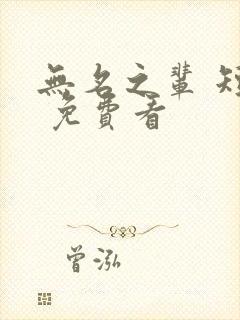 無名之輩 短
免費看
曾泓